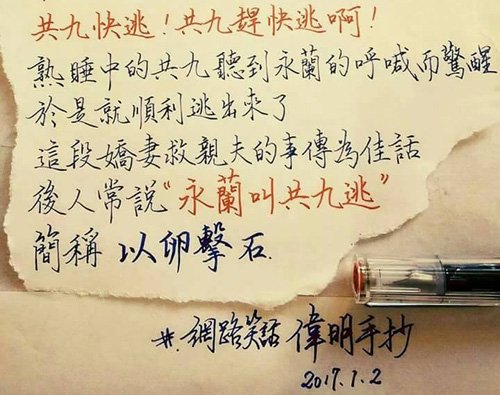 共九快逃！共九趕快逃啊！
熟睡中的共九聽到永蘭的呼喊而驚醒
於是就順利逃出來了
這段嬌妻救親夫的事傳為佳話
後人常說“永蘭叫共九逃”
簡稱 以卵擊石.
#. 網路笑話 偉明手抄
2017.1.2